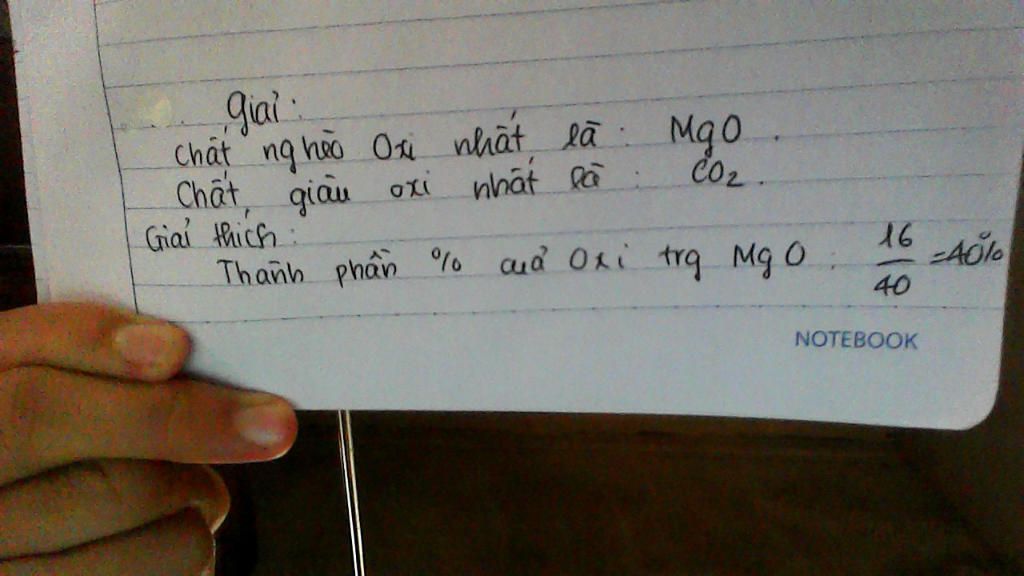 Giải:
Chất nghèo Oxi nhất là: MgO.
Chất giàu oxi nhất là: CO2.
Giải thích:
Thành phần % của Oxi trg MgO: 16/40 = 40%
NOTEBOOK